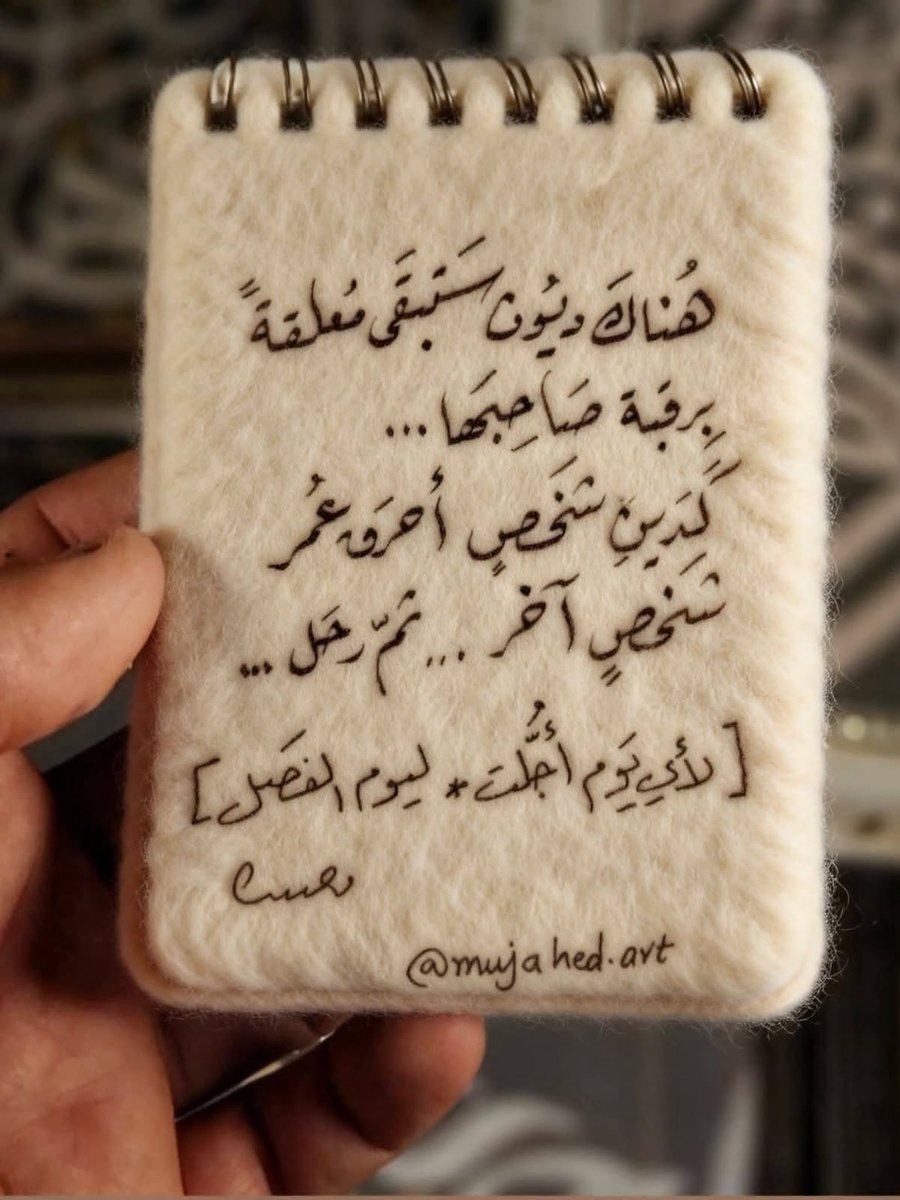 هُناكَ ديُون سَتبقَى مُعلقةً
بِرقبة صَاحِبهَا...
كَدَينِ شَخصٍ أحرَق عُمر
شَخصٍ آخر ... ثمّ رحَل ...
[لأي يَوم أُجّلت * ليوم الفصَل]
@mujahed.art